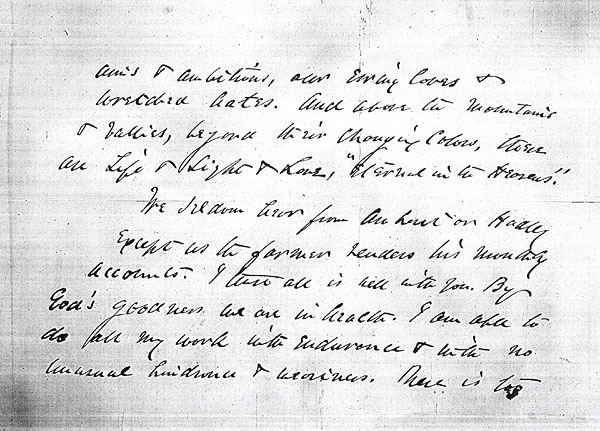 aims & ambitions, our erring loves &
wretched hates. And above the mountains
& vallies, beyond their changing colors, there
are Life & Light & Love, "eternal in the Heavens".
We seldom hear from Amherst or Hadley
except as the farmer renders his monthly
accounts. I trust all is well with you. By
God's goodness we are in health. I am able to
do all my work with endurance & with no
unusual hindrance & weariness. There is